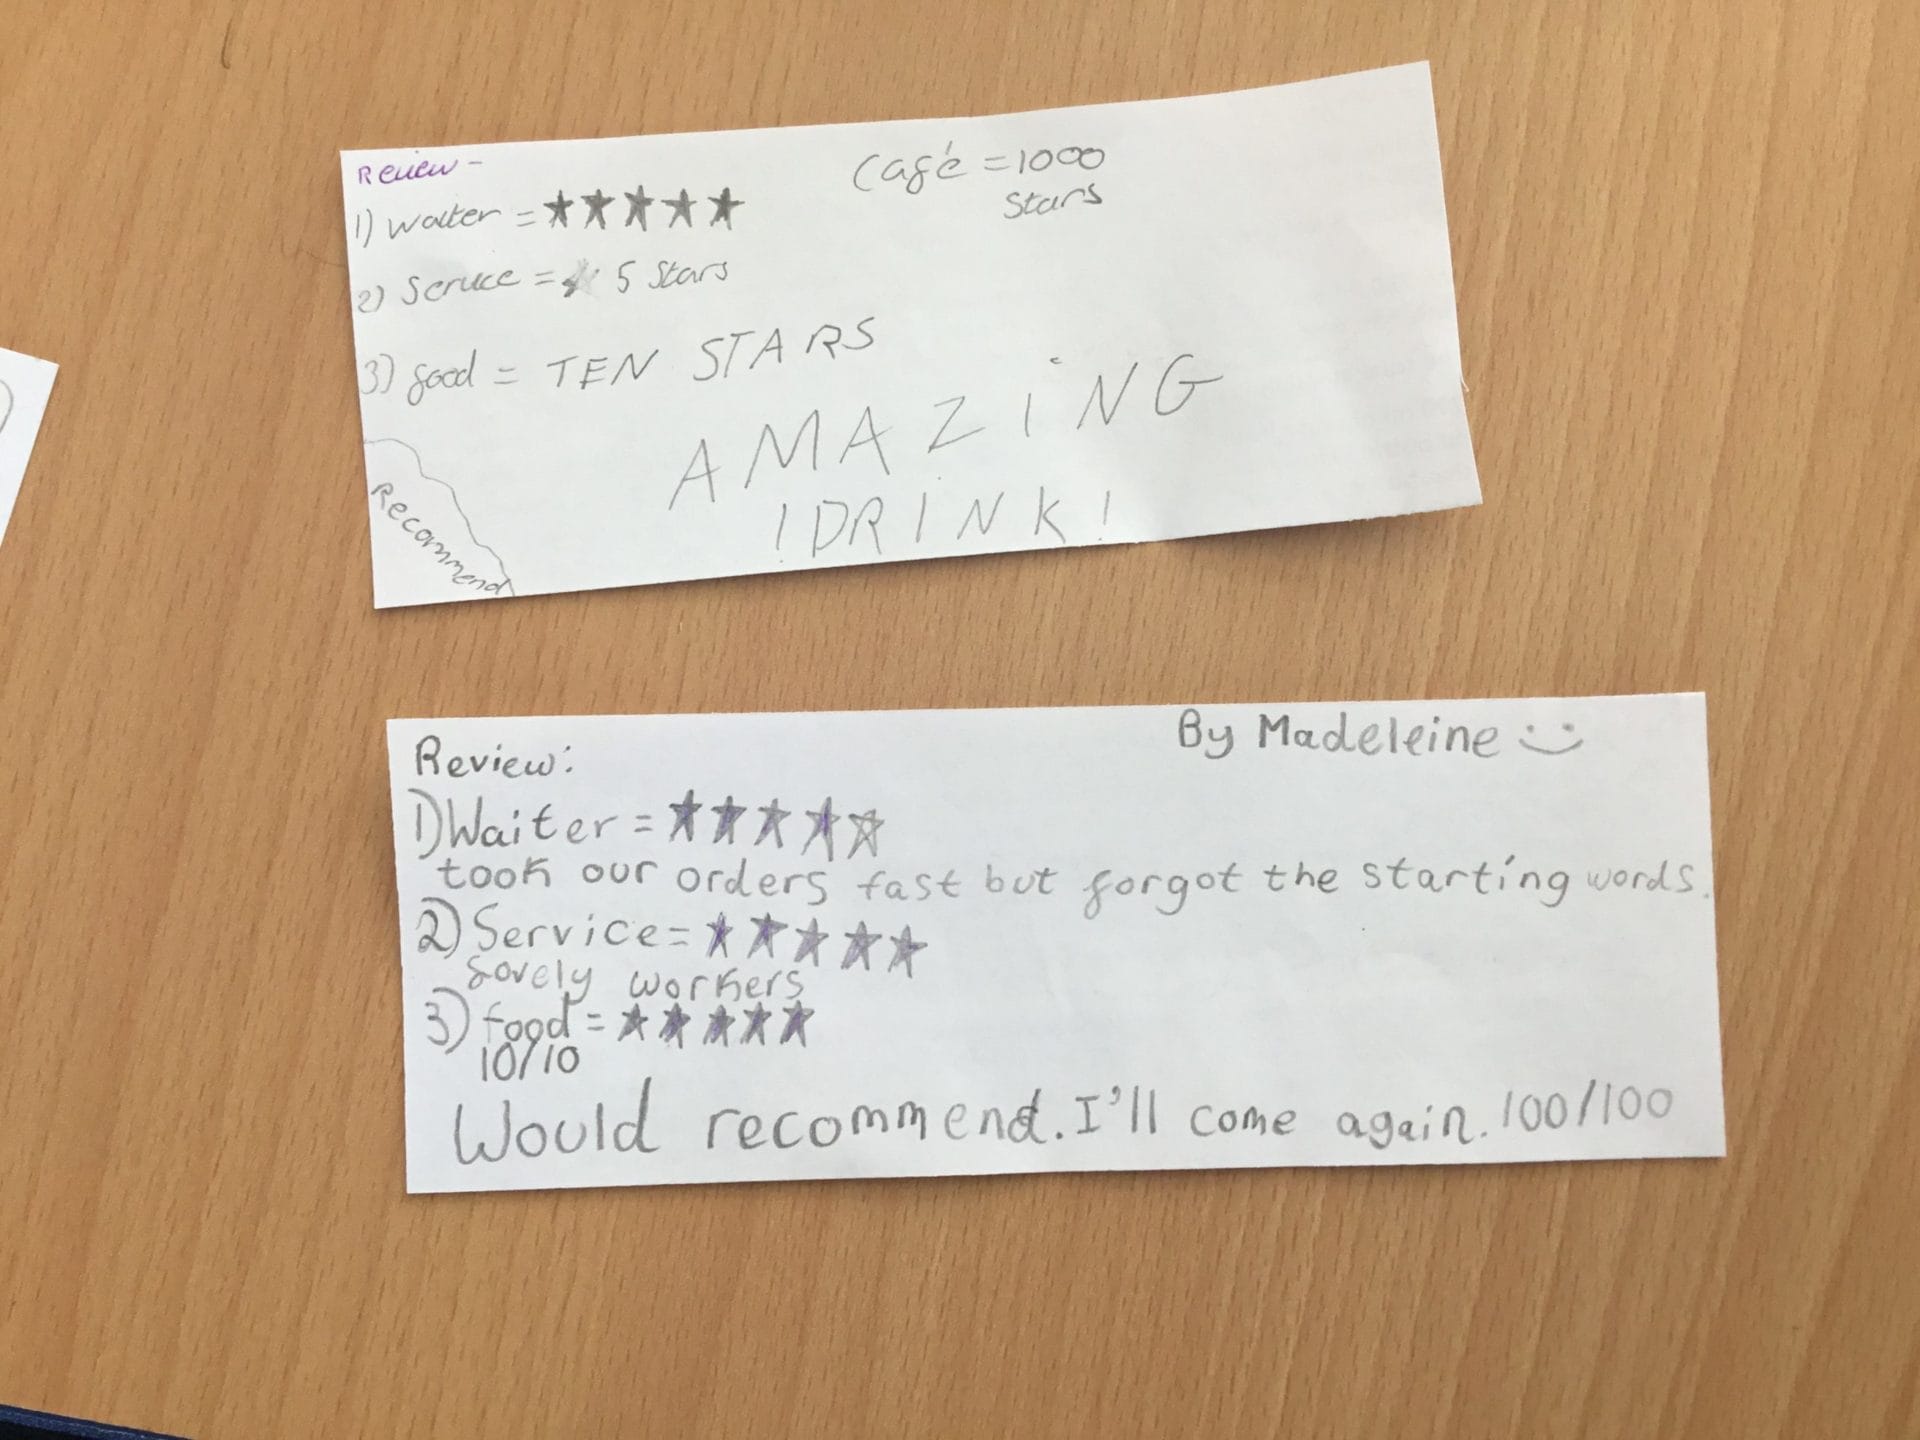 Review -
1) waiter = ★★★★★
2) Service = 5 Stars
3) food = TEN STARS
Café = 1000
Stars
AMAZiNG
!DRINK!
Recommend
By Madeleine :)
Review:
1) Waiter = ★★★★☆
took our orders fast but forgot the starting words.
2) Service = ★★★★★
lovely workers
3) food = ★★★★★
10/10
Would recommend. I'll come again. 100/100